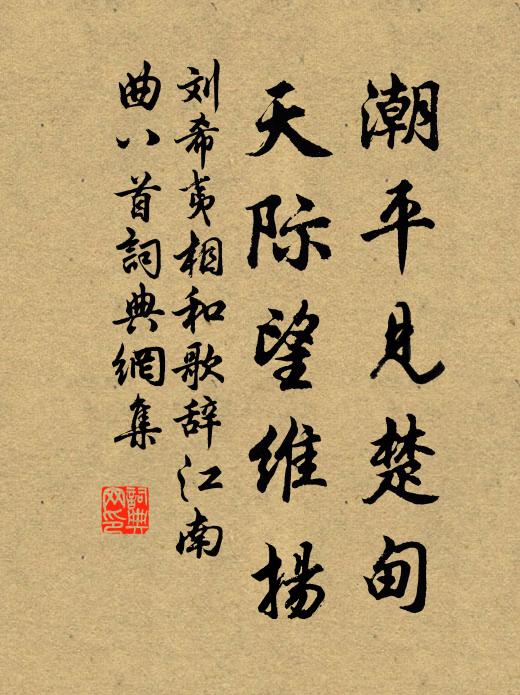 潮平见楚甸
天际望维揚
刘希夷相和歌辞江南
曲八首詞典網集
詞典
网印